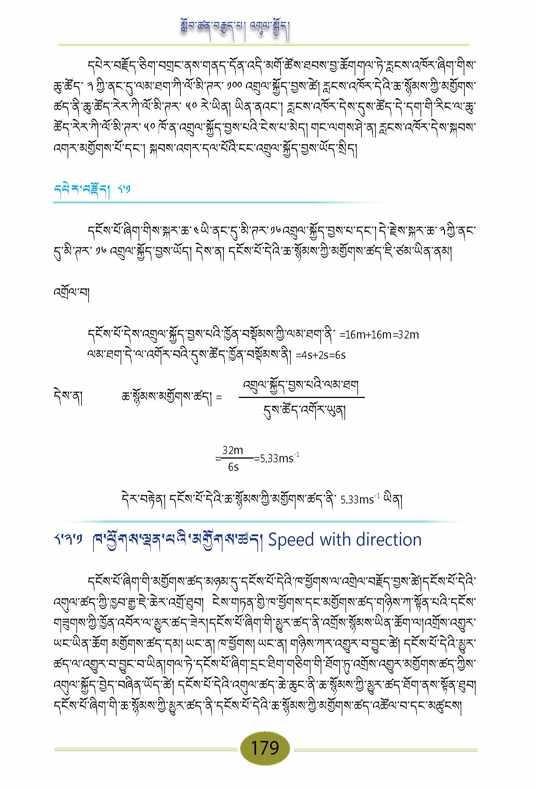 སློབ་ཚན་བརྒྱད་པ། འགུལ་སྐྱོད།
དཔེར་བརྗོད་ཅིག་བཀྲང་ནས་གནད་དོན་འདི་མགོ་ཚོས་ཐབས་བྱ་ཆོག གལ་ཏེ་རླངས་འཁོར་ཞིག་གིས་
ཆུ་ཚོད་ ༡ ཀྱི་ནང་དུ་ལམ་ཐག་ཀི་ལོ་མི་ཊར་ ༡༠༠ འགྲུལ་སྐྱོད་བྱས་ཚེ། རླངས་འཁོར་དེའི་ཆ་སྙོམས་ཀྱི་མགྱོགས་
ཚད་ནི་ཆུ་ཚོད་རེར་ཀི་ལོ་མི་ཊར་ ༥༠ རེ་ཡིན། ཡིན་ནའང་། རླངས་འཁོར་དེས་དུས་ཚོད་དེ་དག་གི་རིང་ལ་ཆུ་
ཚོད་རེར་ཀི་ལོ་མི་ཊར་ ༥༠ ཁོ་ན་འགྲུལ་སྐྱོད་བྱས་པའི་ངེས་པ་མེད། གང་ལགས་ཤེ་ན། རླངས་འཁོར་དེས་སྐབས་
འགར་མགྱོགས་པོ་དང་། སྐབས་འགར་དལ་པོའི་ངང་འགྲུལ་སྐྱོད་བྱས་ཡོད་སྲིད།
དཔེར་བརྗོད། ༨་༡
དངོས་པོ་ཞིག་གིས་སྐར་ཆ་ ༤ ཡི་ནང་དུ་མི་ཊར་ ༡༦ འགྲུལ་སྐྱོད་བྱས་པ་དང་། དེ་རྗེས་སྐར་ཆ་ ༢ ཀྱི་ནང་
དུ་མི་ཊར་ ༡༦ འགྲུལ་སྐྱོད་བྱས་ཡོད། དེས་ན། དངོས་པོ་དེའི་ཆ་སྙོམས་ཀྱི་མགྱོགས་ཚད་ཇི་ཙམ་ཡིན་ནམ།
འགྲོལ་བ།
དངོས་པོ་དེས་འགྲུལ་སྐྱོད་བྱས་པའི་ཁྱོན་བསྡོམས་ཀྱི་ལམ་ཐག་ནི་ =16m+16m=32m
ལམ་ཐག་དེ་ལ་འགོར་བའི་དུས་ཚོད་ཁྱོན་བསྡོམས་ནི། =4s+2s=6s
འགྲུལ་སྐྱོད་བྱས་པའི་ལམ་ཐག
དེས་ན། ཆ་སྙོམས་མགྱོགས་ཚད། =
དུས་ཚོད་འགོར་ཡུན།
32m
= =5.33ms⁻¹
6s
དེར་བརྟེན། དངོས་པོ་དེའི་ཆ་སྙོམས་ཀྱི་མགྱོགས་ཚད་ནི་ 5.33ms⁻¹ ཡིན།
༨་༣་༡ ཁ་ཕྱོགས་ལྡན་པའི་མགྱོགས་ཚད། Speed with direction
དངོས་པོ་ཞིག་གི་མགྱོགས་ཚད་མཉམ་དུ་དངོས་པོ་དེའི་ཁ་ཕྱོགས་ལ་འགྲེལ་བརྗོད་བྱས་ཚེ།དངོས་པོ་དེའི་
འགུལ་ཚད་ཀྱི་ཁྱབ་རྒྱ་ཇེ་ཆེར་འགྲོ་ཐུབ། ངེས་གཏན་གྱི་ཁ་ཕྱོགས་དང་མགྱོགས་ཚད་གཉིས་ཀ་སྟོན་པའི་དངོས་
གཟུགས་ཀྱི་ཁྱོན་འབོར་ལ་མྱུར་ཚད་ཟེར།དངོས་པོ་ཞིག་གི་མྱུར་ཚད་ནི་འགྲོས་སྙོམས་ཡིན་ཆོག་ལ།འགྲོས་འགྱུར་
ཡང་ཡིན་ཆོག མགྱོགས་ཚད་དམ། ཡང་ན། ཁ་ཕྱོགས། ཡང་ན། གཉིས་ཀར་འགྱུར་བ་བྱུང་ཚེ། དངོས་པོ་དེའི་མྱུར་
ཚད་ལ་འགྱུར་བ་བྱུང་བ་ཡིན།གལ་ཏེ་དངོས་པོ་ཞིག་དྲང་ཐིག་གཅིག་གི་ཐོག་ཏུ་འགྲོས་འགྱུར་མགྱོགས་ཚད་ཀྱིས་
འགུལ་སྐྱོད་བྱེད་བཞིན་ཡོད་ཚེ། དངོས་པོ་དེའི་འགུལ་ཚད་ཆེ་ཆུང་ནི་ཆ་སྙོམས་ཀྱི་མྱུར་ཚད་ཐོག་ནས་སྟོན་ཐུབ།
དངོས་པོ་ཞིག་གི་ཆ་སྙོམས་ཀྱི་མྱུར་ཚད་ནི་དངོས་པོ་དེའི་ཆ་སྙོམས་ཀྱི་མགྱོགས་ཚད་འཚོལ་བ་དང་མཚུངས།
179